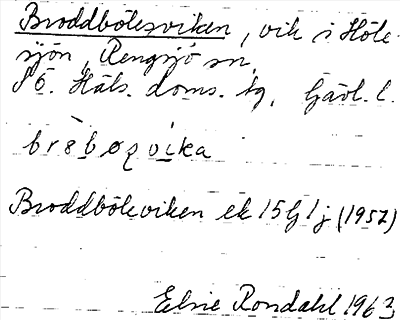 Broddbölesviken, vik i Höle-
sjön, Rengsjö sn.
SÖ. Häls. doms. tg, Gävl. l.
brs̀bøʐvika
Broddböleviken ek 15G1j (1957)
Elsie Rondahl 1963